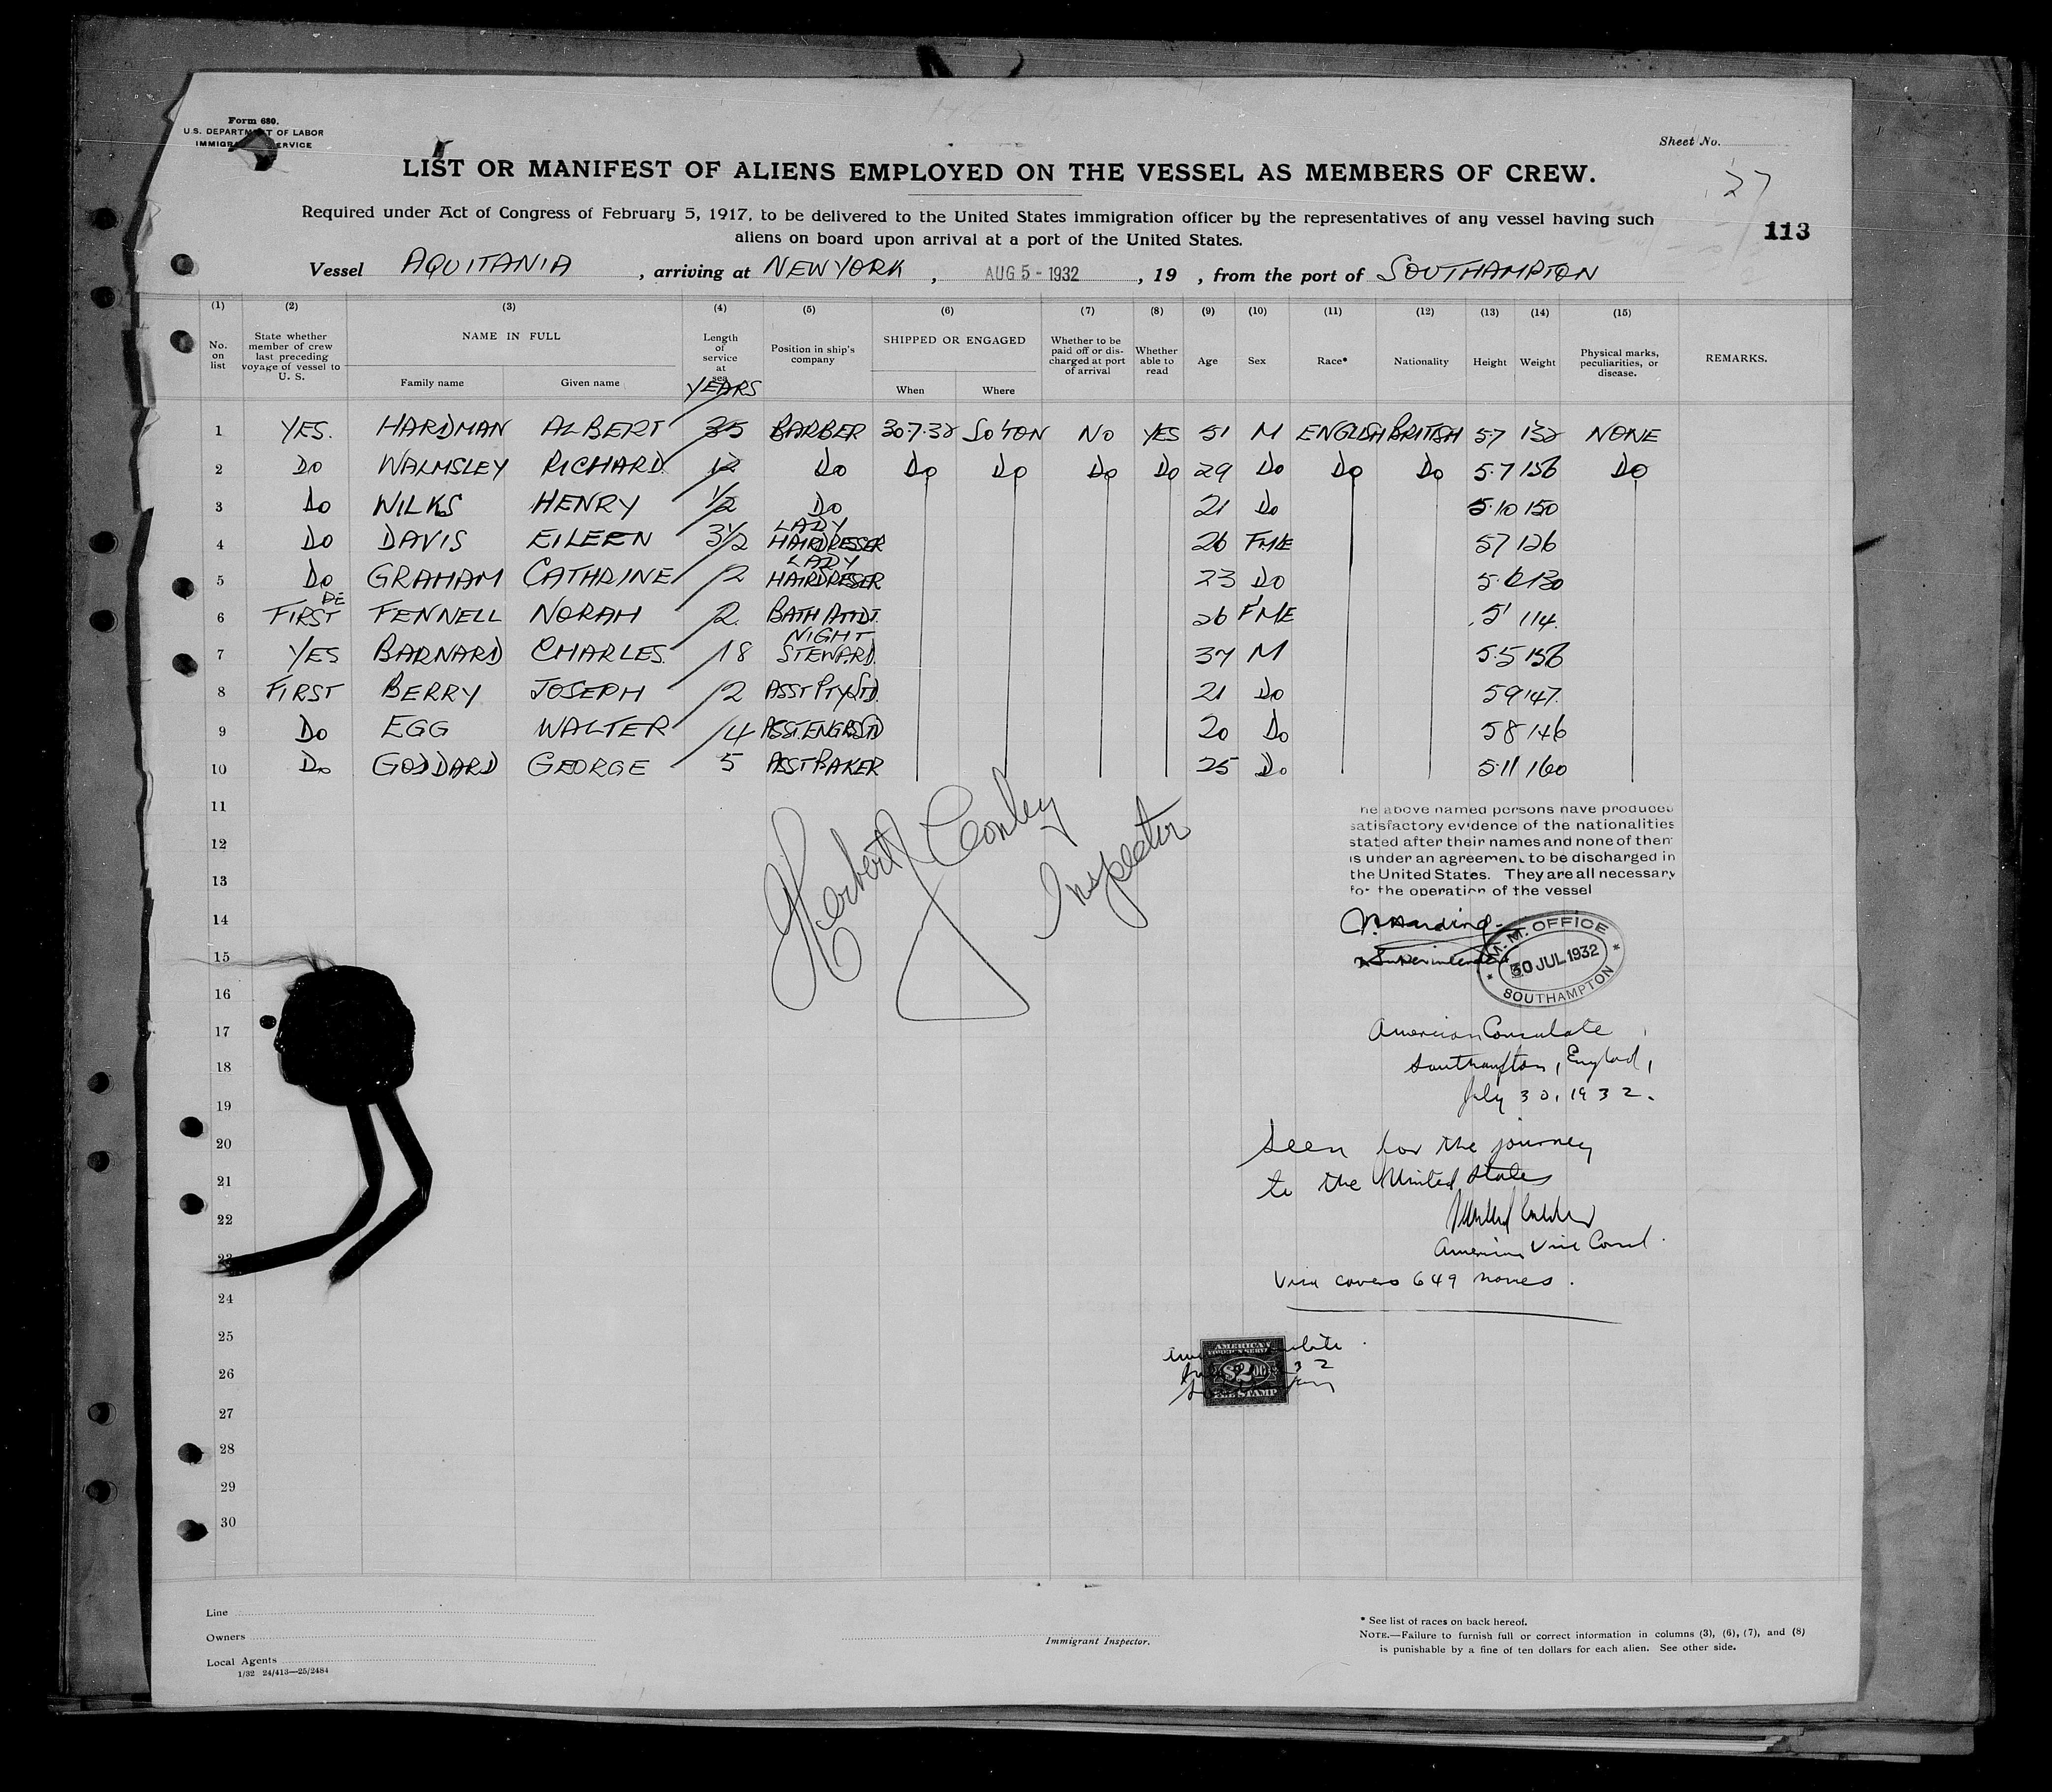 Form 680.
U.S. DEPARTMENT OF LABOR
IMMIGR SERVICE
Sheet No.
LIST OR MANIFEST OF ALIENS EMPLOYED ON THE VESSEL AS MEMBERS OF CREW.
27
Required under Act of Congress of February 5, 1917, to be delivered to the United States immigration officer by the representatives of any vessel having such
aliens on board upon arrival at a port of the United States.
113
Vessel AQUITANIA, arriving at NEW YORK, AUG 5 - 1932, 19 , from the port of SOUTHAMPTON
(1) (2) (3) (4) (5) (6) (7) (8) (9) (10) (11) (12) (13) (14) (15)
No. on list State whether member of crew last preceding voyage of vessel to U. S. NAME IN FULL Family name Given name Length of service at sea YEARS Position in ship's company SHIPPED OR ENGAGED When Where Whether to be paid off or discharged at port of arrival Whether able to read Age Sex Race* Nationality Height Weight Physical marks, peculiarities, or disease. REMARKS.
1 YES. HARDMAN ALBERT 35 BARBER 30.7.32 SO'TON NO YES 51 M ENGLISH BRITISH 5.7 132 NONE
2 DO WALMSLEY RICHARD 12 DO DO DO DO DO 29 DO DO DO 5.7 156 DO
3 DO WILKS HENRY 1/2 DO 21 DO 5.10 150
4 DO DAVIS EILEEN 3 1/2 LADY HAIRDRESSER 26 FMLE 5 7 126
5 DO GRAHAM CATHRINE 2 LADY HAIRDRESER 23 DO 5.6 130
6 FIRST FENNELL NORAH 2. BATH ATTDT. 26 F'MLE 5' 114.
7 YES BARNARD CHARLES. 18 NIGHT STEWARD. 37 M 5.5 156
8 FIRST BERRY JOSEPH 2 ASST PTY STD. 21 DO 5 9 147.
9 DO EGG WALTER 4 20 DO 5 8 146
10 DO GODDARD GEORGE 5 ASST BAKER 25 DO 5.11 160
11
12
13
14
15
16
17
18
19
20
21
22
23
24
25
26
27
28
29
30
Herbert J Conley
Inspector
he above named persons have produced
satisfactory evidence of the nationalities
stated after their names and none of them
is under an agreement to be discharged in
the United States. They are all necessary
for the operation of the vessel
Harding
Superintendent
M. M. OFFICE
30 JUL 1932
SOUTHAMPTON
American Consulate
Southampton, England,
July 30, 1932.
Seen for the journey
to the United States
American Vice Consul.
Visa covers 649 names.
AMERICAN
FOREIGN SERVICE
$2.00
FEE STAMP
Line
Owners
Local Agents
1/32 24/413—25/2484
Immigrant Inspector.
* See list of races on back hereof.
NOTE.—Failure to furnish full or correct information in columns (3), (6), (7), and (8)
is punishable by a fine of ten dollars for each alien. See other side.